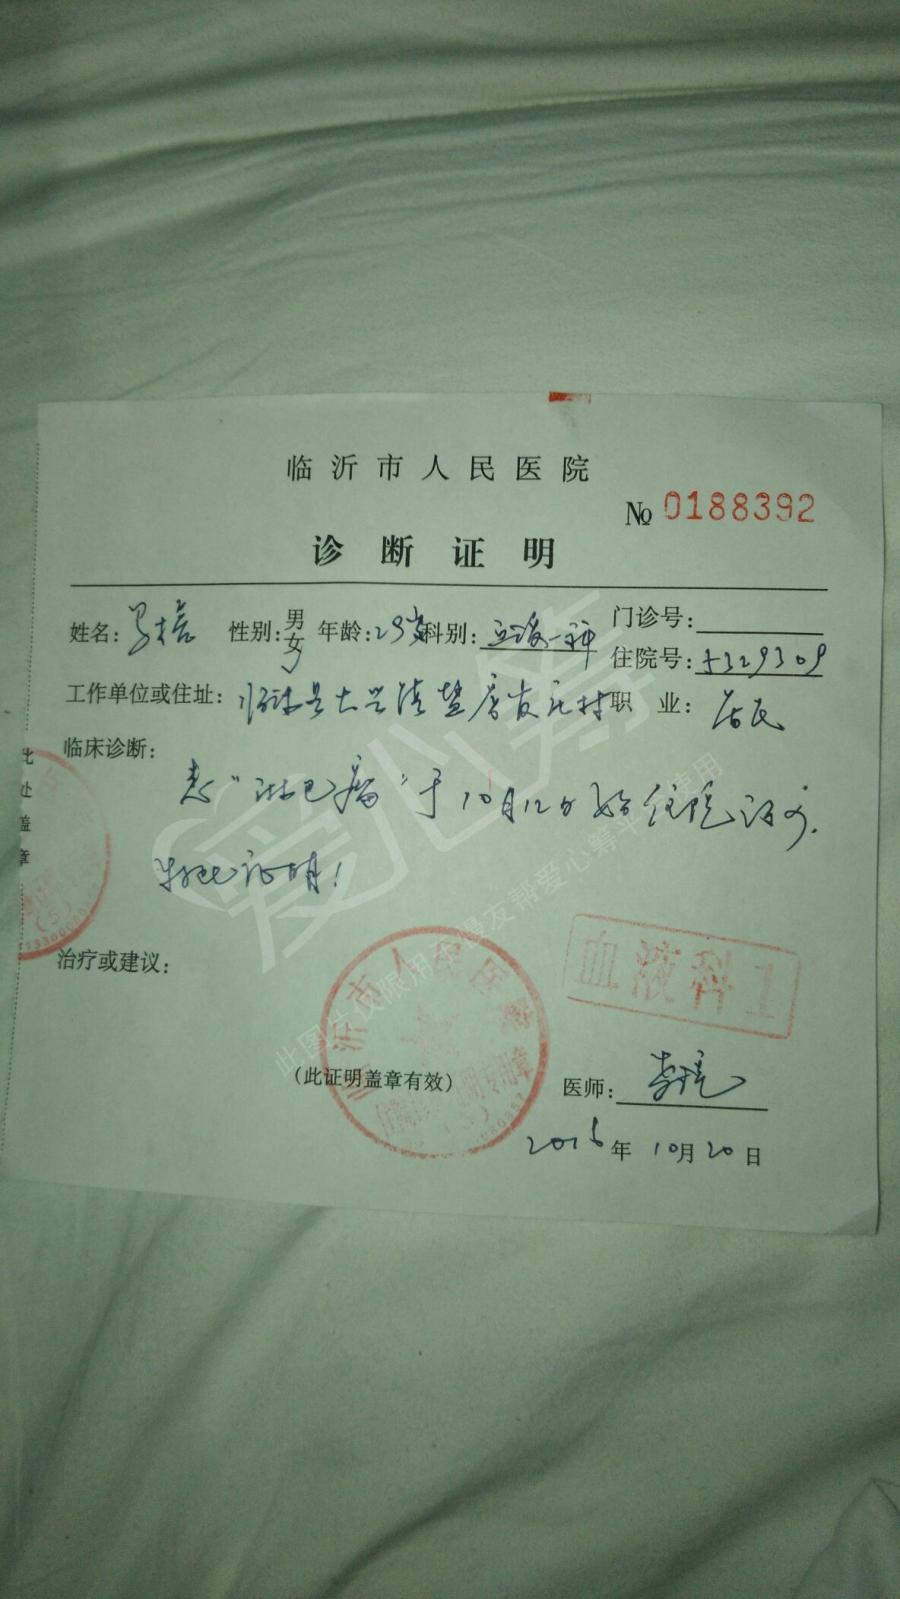 临沂市人民医院
№ 0188392
诊断证明
姓名: 性别: 男 女 年龄: 29岁 科别: 血液一科 门诊号:
住院号: 5329309
工作单位或住址: 临沭县大兴镇 村 职业: 居民
临床诊断:
患"淋巴瘤"于10月12日 始住院治疗.
特此证明!
此处盖章
治疗或建议:
血液科1
(此证明盖章有效)
医师:
2015年10月20日
爱心筹